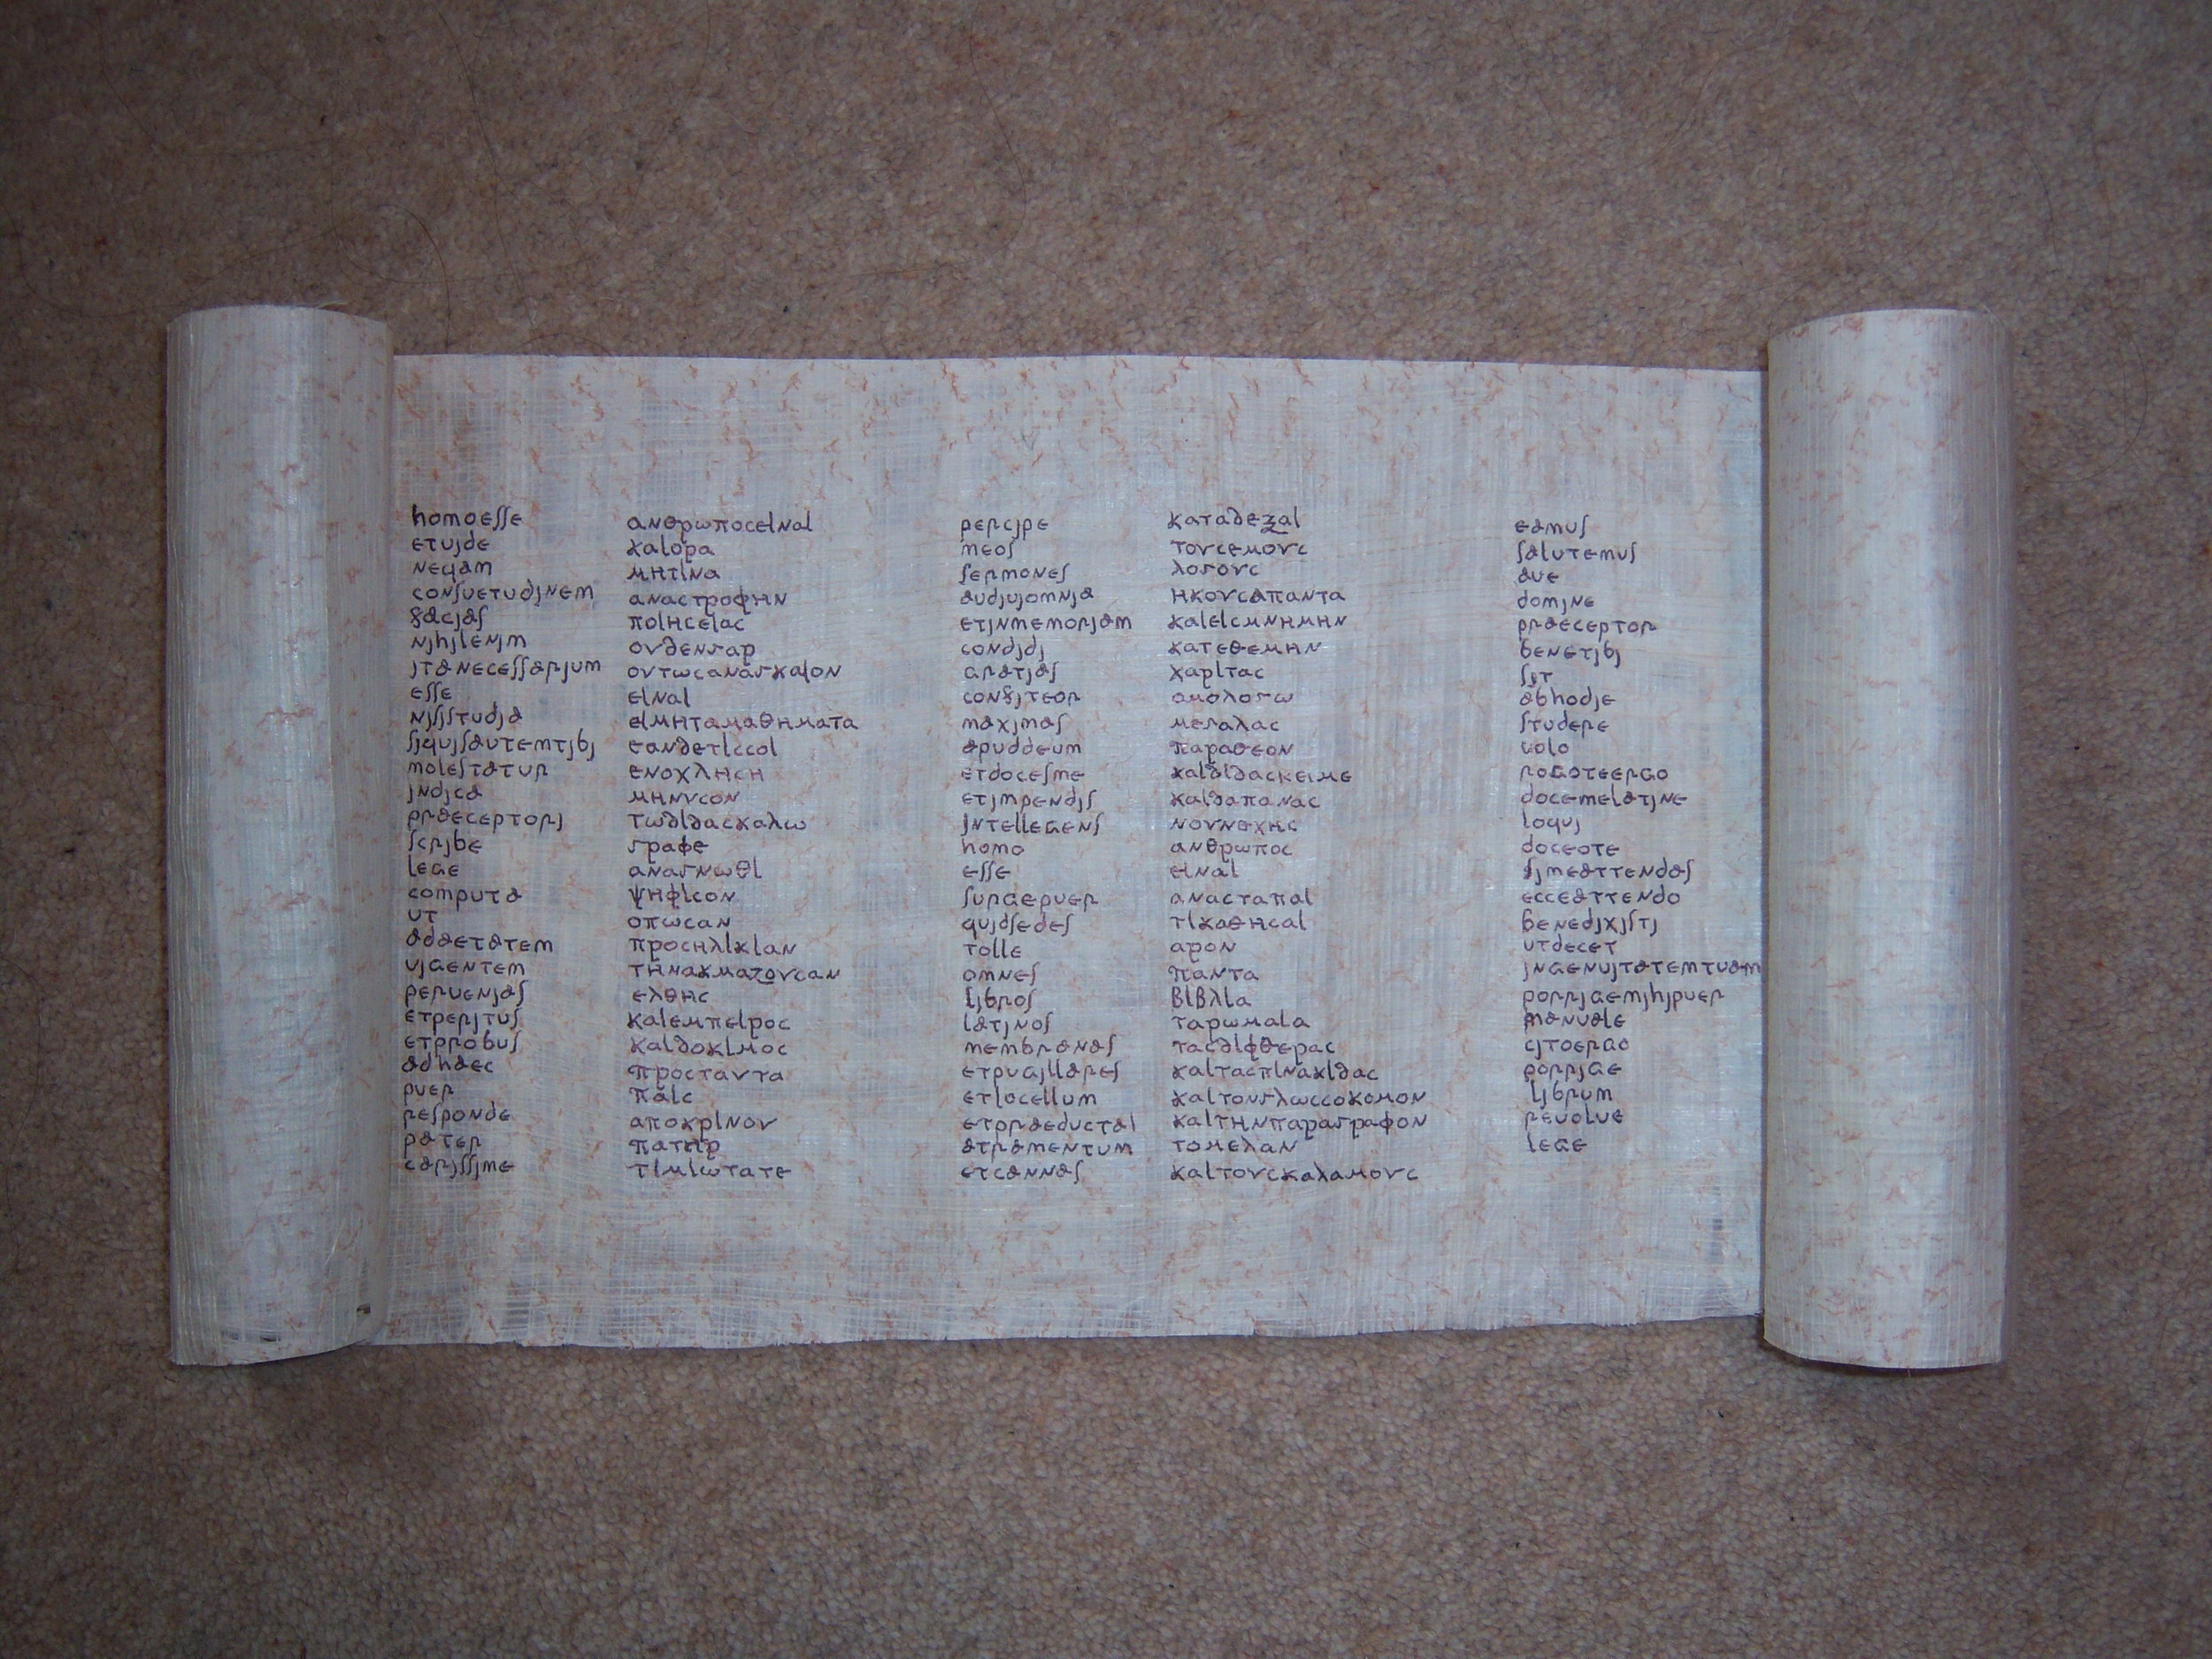 homoesse ανθρωποϲειναι
etuide καιορα
nequam μητινα
consuetudinem αναϲτροφην
facias ποιηϲειαϲ
nihilenim ουδενγαρ
itanecessarium ουτωϲαναγκαιον
esse ειναι
nisistudia ειμηταμαθηματα
siquisautemtibi εανδετιϲϲοι
molestatur ενοχληϲη
indica μηνυϲον
praeceptori τωδιδαϲκαλω
scribe γραφε
lege αναγνωθι
computa ψηφιϲον
ut οπωϲαν
adaetatem προϲηλικιαν
uigentem τηνακμαζουϲαν
peruenias ελθηϲ
etperitus καιεμπειροϲ
etprobus καιδοκιμοϲ
adhaec προϲταυτα
puer παιϲ
responde αποκρινου
pater πατηρ
carissime τιμιωτατε
percipe καταδεξαι
meos τουϲεμουϲ
sermones λογουϲ
audiuiomnia ηκουϲαπαντα
etinmemoriam καιειϲμνημην
condidi κατεθεμην
gratias χαριταϲ
confiteor ομολογω
maximas μεγαλαϲ
apuddeum παραθεον
etdocesme καιδιδαϲκειϲμε
etimpendis καιδαπαναϲ
intellegens νουνεχηϲ
homo ανθρωποϲ
esse ειναι
surgepuer αναϲταπαι
quidsedes τικαθηϲαι
tolle αρον
omnes παντα
libros βιβλια
latinos ταρωμαια
membranas ταϲδιφθεραϲ
etpugillares καιταϲπινακιδαϲ
etlocellum καιτονγλωϲϲοκομον
etpraeductal καιτηνπαραγραφον
atramentum τομελαν
etcannas καιτουϲκαλαμουϲ
eamus
salutemus
aue
domine
praeceptor
benetibi
sit
abhodie
studere
uolo
rogoteergo
docemelatine
loqui
doceote
simeattendas
ecceattendo
benedixisti
utdecet
ingenuitatemtuam
porrigemihipuer
manuale
citoergo
porrige
librum
reuolue
lege